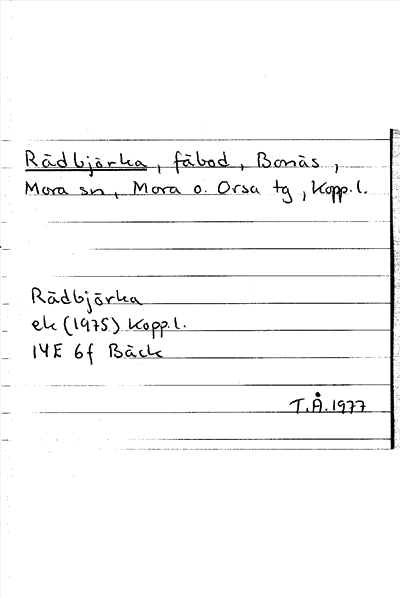 Rädbjörka, fäbod, Bonäs,
Mora sn, Mora o. Orsa tg, Kopp.l.
Rädbjörka
ek (1975) Kopp.l.
14E 6f Bäck
T.Å.1977